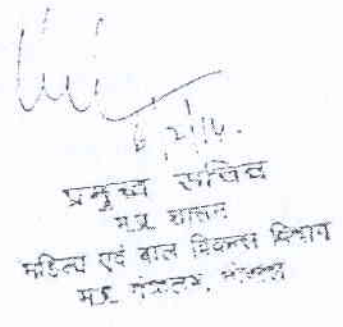 6/2/14.
प्रमुख सचिव
म.प्र. शासन
महिला एवं बाल विकास विभाग
म.प्र. मंत्रालय, भोपाल